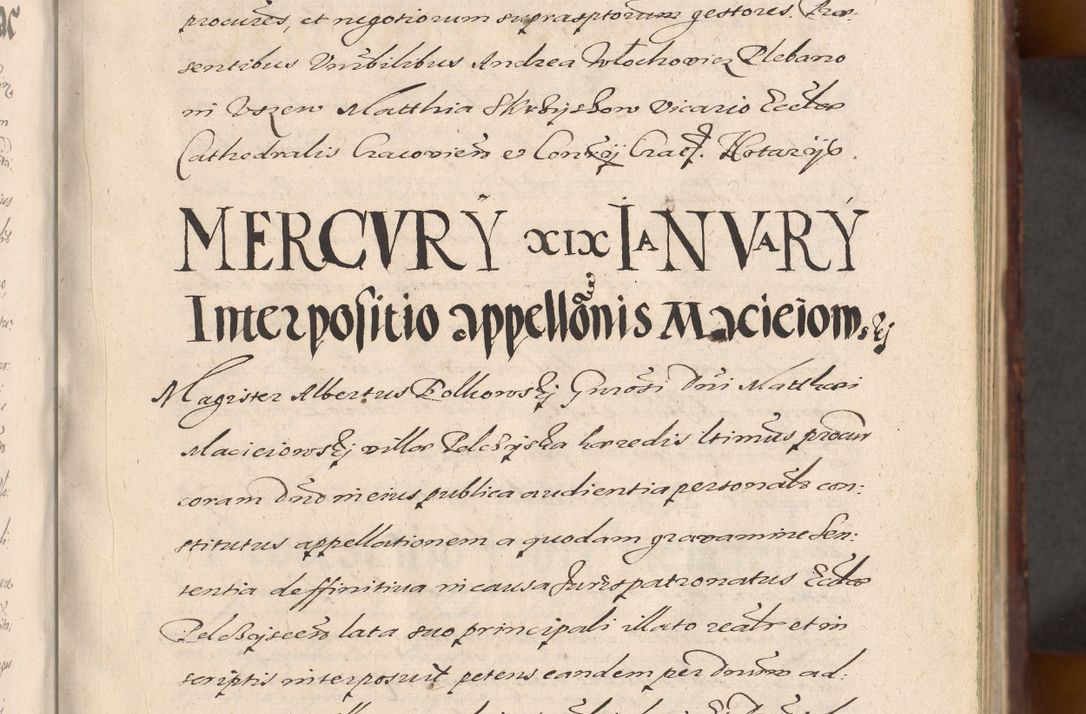 procures, et negotiorum suprasptorum gestores. Præ-
sentibus Vnrbilibus Andrea Włochowicz Plebano
in Vszew Matthia Skrzyszow Vicario Eccłæ
Cathedralis Cracovien̄ & Consrij Cratł. Notarijs.
MERCVRŸ XIX IANVARŸ
Interpositio appellōnis Macieiowskj
Magister Albertus Polkowskj Gnrosi Dn̄i Matthæi
Macieiowskj villæ Pelczyska hæredis ltimus procur
coram Dn̄o in eius publica audientia personałr con:
stitutus appellationem a quodam gravamine Sen:
tentia deffinitiva in causa Juris patronatus Eccłæ
Pelczyscen̄ lata suo principali illato reałr et in
scriptis interposuit petens eandem per Dnum ad: